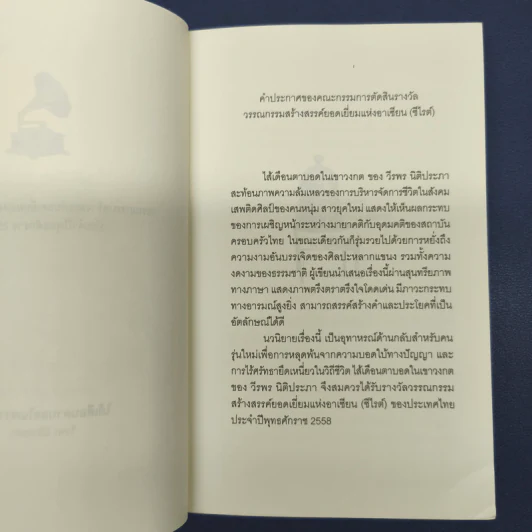 คำประกาศของคณะกรรมการตัดสินรางวัล
วรรณกรรมสร้างสรรค์ยอดเยี่ยมแห่งอาเซียน (ซีไรต์)
ไส้เดือนตาบอดในเขาวงกต ของ วีรพร นิติประภา
สะท้อนภาพความล้มเหลวของการบริหารจัดการชีวิตในสังคม
เสพติดศิลป์ของคนหนุ่ม สาวยุคใหม่ แสดงให้เห็นผลกระทบ
ของการเผชิญหน้าระหว่างมายาคติกับอุดมคติของสถาบัน
ครอบครัวไทย ในขณะเดียวกันก็รุ่มรวยไปด้วยการหยั่งถึง
ความงามอันบรรเจิดของศิลปะหลากแขนง รวมทั้งความ
งดงามของธรรมชาติ ผู้เขียนนำเสนอเรื่องนี้ผ่านสุนทรียภาพ
ทางภาษา แสดงภาพตรึงตราตรึงใจโดดเด่น มีภาวะกระทบ
ทางอารมณ์สูงยิ่ง สามารถสรรค์สร้างคำและประโยคที่เป็น
อัตลักษณ์ได้ดี
นวนิยายเรื่องนี้ เป็นอุทาหรณ์ด้านกลับสำหรับคน
รุ่นใหม่เพื่อการหลุดพ้นจากความบอดใบ้ทางปัญญา และ
การไร้ศรัทธายึดเหนี่ยวในวิถีชีวิต ไส้เดือนตาบอดในเขาวงกต
ของ วีรพร นิติประภา จึงสมควรได้รับรางวัลวรรณกรรม
สร้างสรรค์ยอดเยี่ยมแห่งอาเซียน (ซีไรต์) ของประเทศไทย
ประจำปีพุทธศักราช 2558